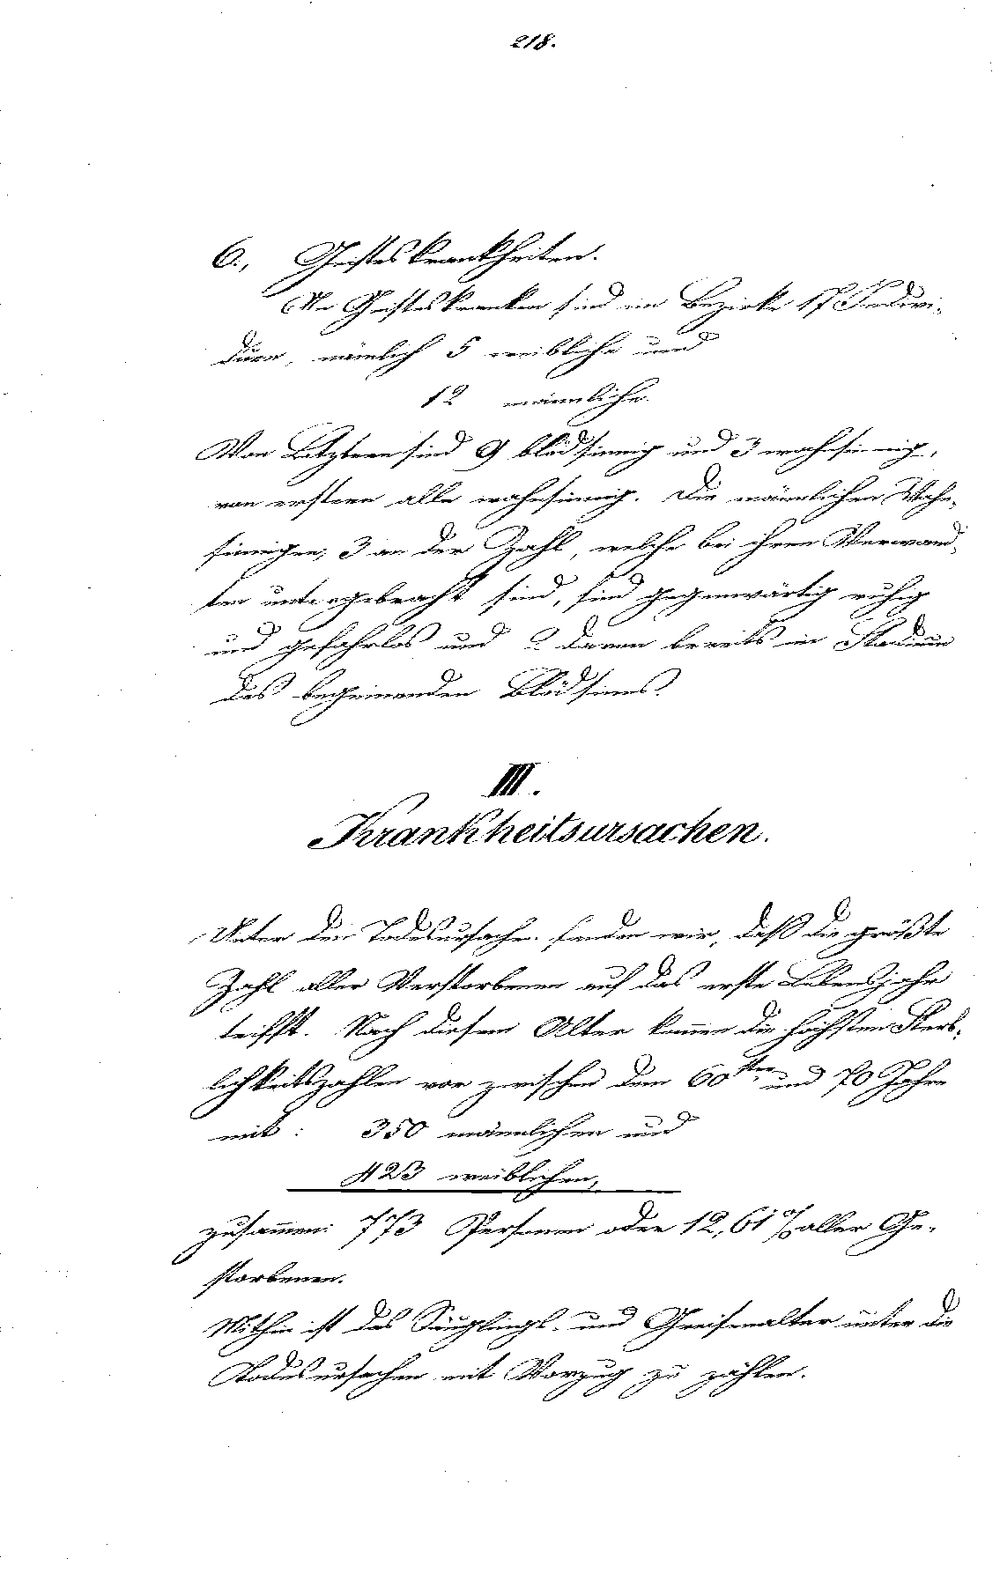 218.
6., Geisteskrankheiten.
An Geisteskranken sind im Bezirke 17 Indivi-
duen, nämlich 5 weibliche und
12 männliche.
Von Letztern sind 9 blödsinnig und 3 wahnsinnig,
von erstern alle wahnsinnig. Die männlichen Wahn-
sinnigen, 3 an der Zahl, welche bei ihren Verwand-
ten untergebracht sind, sind gegenwärtig ruhig
und gefahrlos und 2 davon bereits im Stadium
des beginnenden Blödsinns.
III.
Krankheitsursachen.
Unter den Todesursachen fanden wir, daß die größte
Zahl aller Verstorbenen auf das erste Lebensjahr
trifft. Nach diesem Alter kamen die höchsten Sterb-
lichkeitszahlen vor zwischen dem 60ten und 70 Jahre
mit: 350 männlichen und
423 weiblichen,
zusammen: 773 Personen oder 12,61 % aller Ge-
storbenen.
Mithin ist das Säuglings- und Greisenalter unter die
Todesursachen mit Vorzug zu zählen.